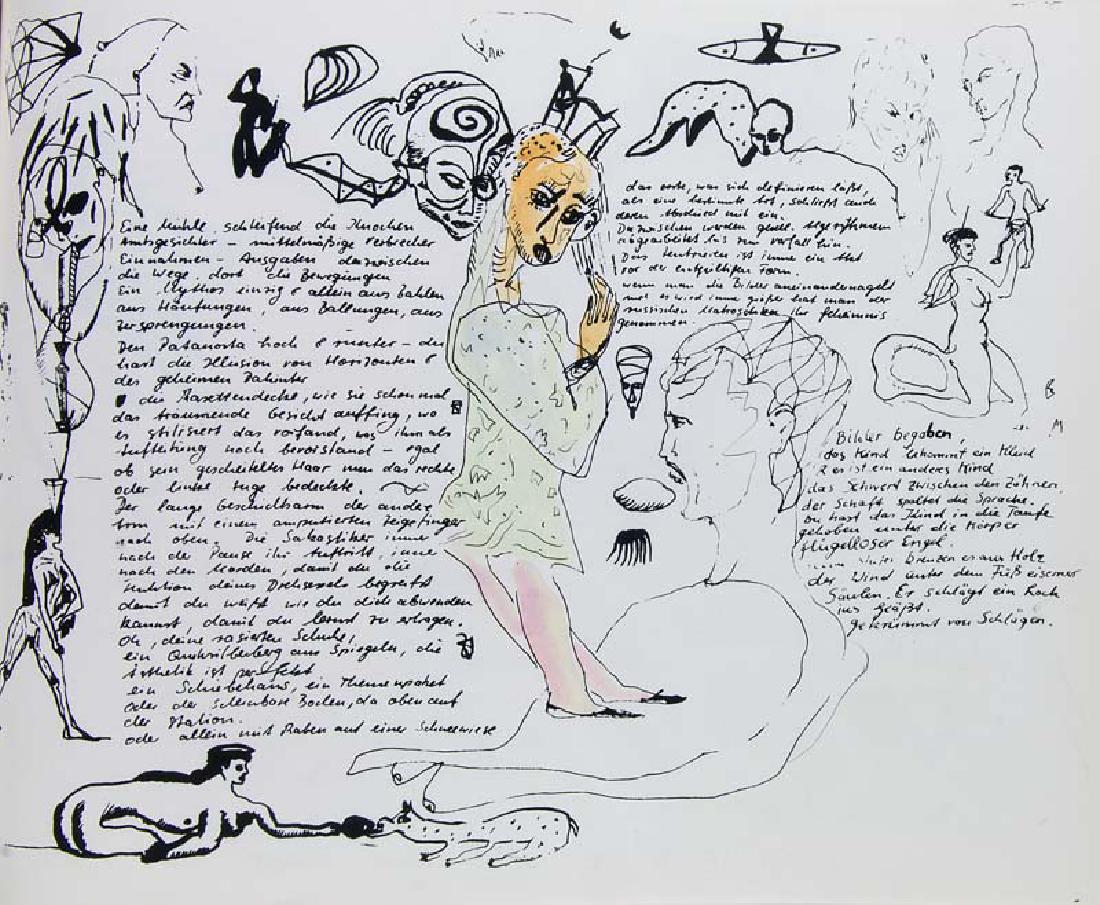 Eine Mühle, schleifend die Knochen
Amtsgesichter – mittelmäßige Verbrecher
Einnahmen – Ausgaben dazwischen
die Wege, dort die Bewegungen
Ein Mythos einzig & allein aus Zahlen
aus Häutungen, aus Ballungen, aus
Zersprengungen.
Den hoch & runter –
hart die Illusion von Horizonten &
des geheimen
die Kasettendecke, wie sie schon mal
das träumende Gesicht auffing, wo
es stilisiert das vorfand, was ihm als
noch bevorstand – egal
ob sein gescheiteltes Haar nun das rechte
oder linke Auge bedeckte.
Der lange Geschichtsarm der
mit einem amputierten Zeigefinger
nach oben. Die immer
nach der Pause ihr Auftritt, immer
nach den Morden, damit du die
Intention deines begreifst
damit du weißt wie du dich abwenden
kannst, damit du lernst zu ertragen.
Oh, deine rasierten Schuhe,
ein aus Spiegeln, die
Ästhetik ist perfekt
ein ein Themenpaket
oder der scheinbare Boden, da oben auf
der Station.
oder allein mit Raben auf einer Schneewiese
das erste, was sich definieren läßt,
als eine bestimmte Art, schließt auch
deren mit ein.
Dazwischen werden
bis zum Verfall hin.
Das ist immer ein Akt
vor der Form.
wenn man die Bilder aneinandernagelt
es wird immer größer hat man der
russischen ihr Geheimnis
genommen
Bilder begaben,
das Kind bekommt ein Kleid
& es ist ein anderes Kind
das Schwert zwischen den Zähnen,
der Schaft spaltet die Sprache.
Du hast das Kind in die Taufe
gehoben unter die Körper
flügelloser Engel.
aus Holz
der Wind unter dem Fuß eiserner
Säulen. Er schlägt ein Loch
ins
gekrümmt von Schlägen.